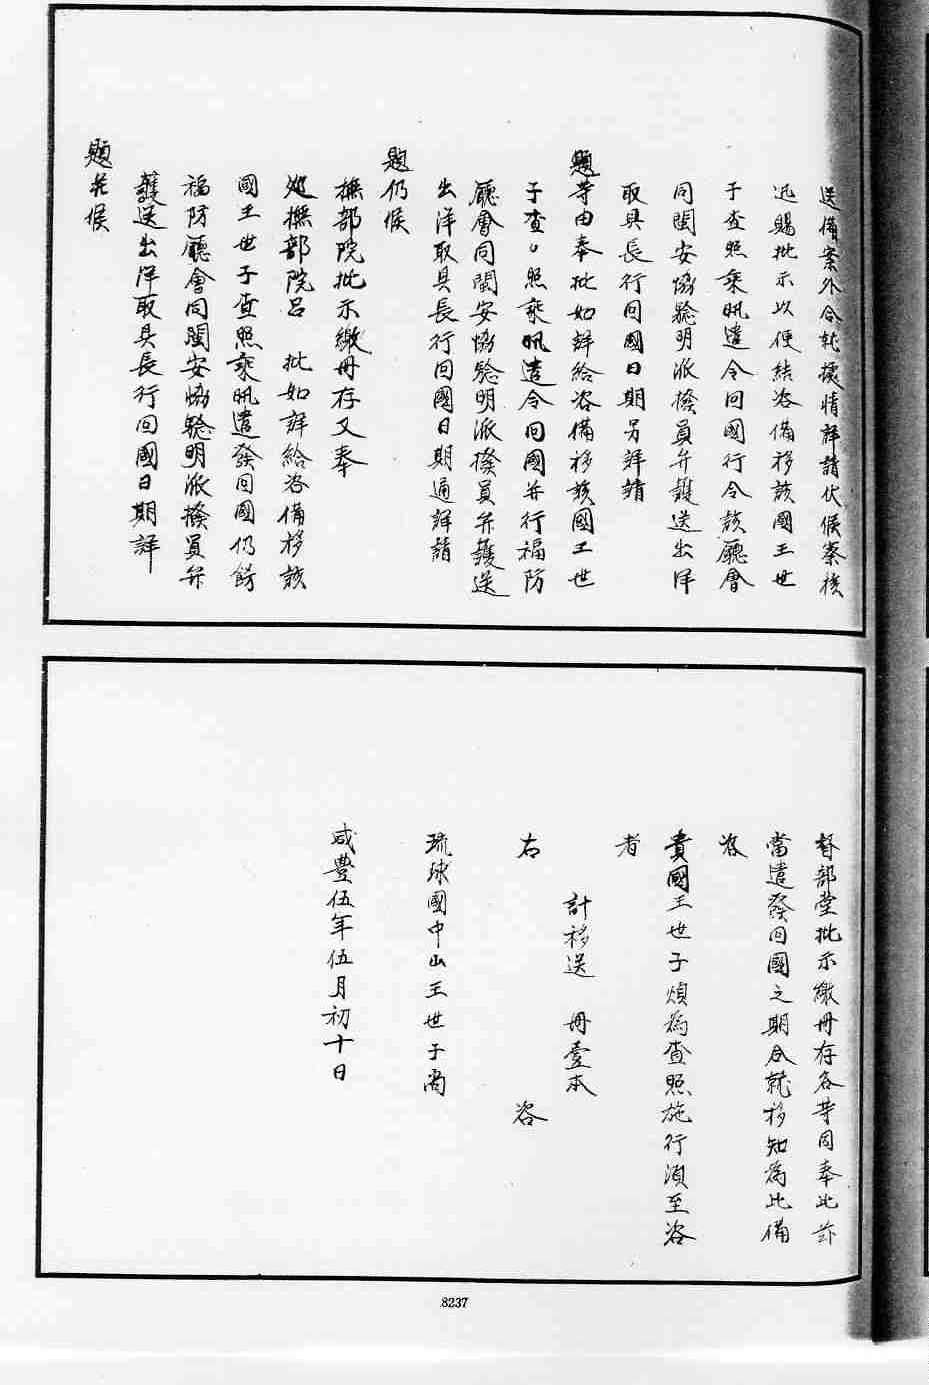 送備案外合就據情詳請伏候察核
迅賜批示以便結咨備移該國王世
子查照乘汛遣令回國行令該廳會
同閩安協驗明派撥員弁護送出洋
取具長行回國日期另詳請
題等由奉批如詳給咨備移該國王世
子查照乘汛遣令回國并行福防
廳會同閩安協驗明派撥員弁護送
出洋取具長行回國日期通詳請
題仍候
撫部院批示繳冊存又奉
巡撫部院呂 批如詳給咨備移該
國王世子查照乘汛遣發回國仍飭
福防廳會同閩安協驗明派撥員弁
護送出洋取具長行回國日期詳
題并候
督部堂批示繳冊存各等因奉此茲
當遣發回國之期合就移知為此備
咨
貴國王世子煩為查照施行須至咨
者
計移送 冊壹本
右 咨
琉球國中山王世子尚
咸豐伍年伍月初十日
8237